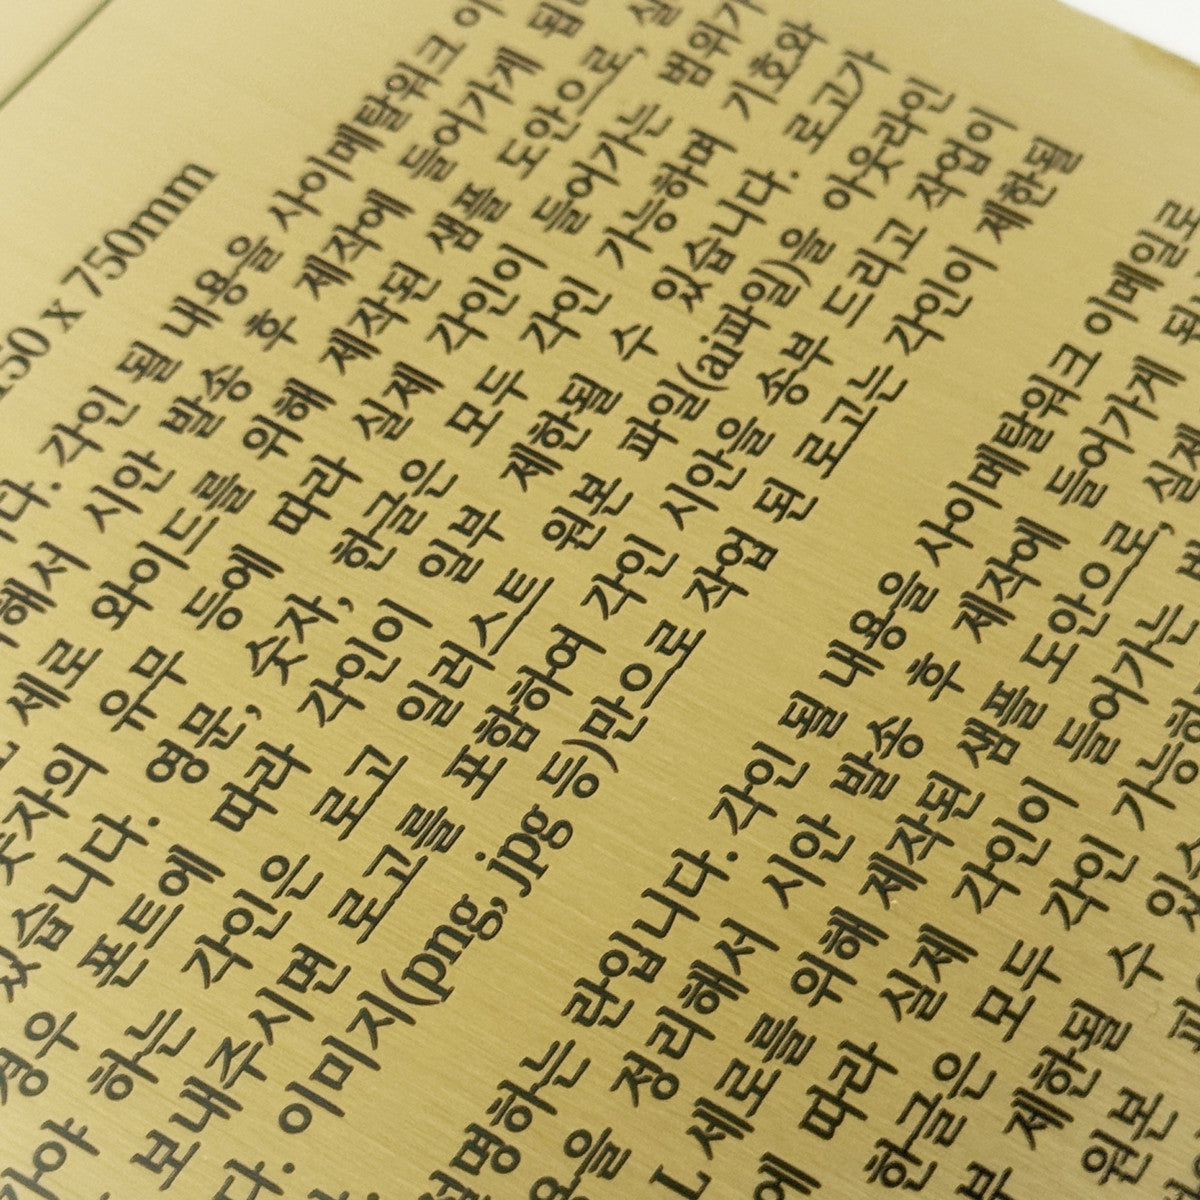 x 750mm
각인 될 내용을 사이메탈워크
시안 발송 후 제작에 들어가게
세로 와이드를 위해 제작된 샘플 도안으로,
숫자의 유무 등에 따라 실제 각인이 들어가는 범위가
있습니다. 영문, 숫자, 한글은 모두 각인 가능하며 기호와
경우 폰트에 따라 각인이 일부 제한될 수 있습니다. 로고가
하는 각인은 로고 일러스트 원본 파일(ai파일)을 아웃라인
보내주시면 로고를 포함하여 각인 시안을 송부 드리고 작업이
이미지(png, jpg 등)만으로 작업 된 로고는 각인이 제한될
설명하는 란입니다. 각인 될 내용을 사이메탈워크 이메일로
정리해서 시안 발송 후 제작에 들어가게
L 세로를 위해 제작된 샘플 도안으로, 실제
따라 실제 각인이 들어가는
한글은 모두 각인
제한될 수
원본